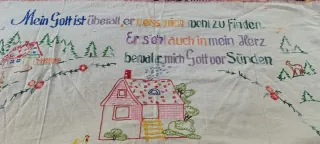 Mein Gott ist überall, er weiss mich wohl zu finden.
Er sieht auch in mein Herz
bewahr mich Gott vor Sünden